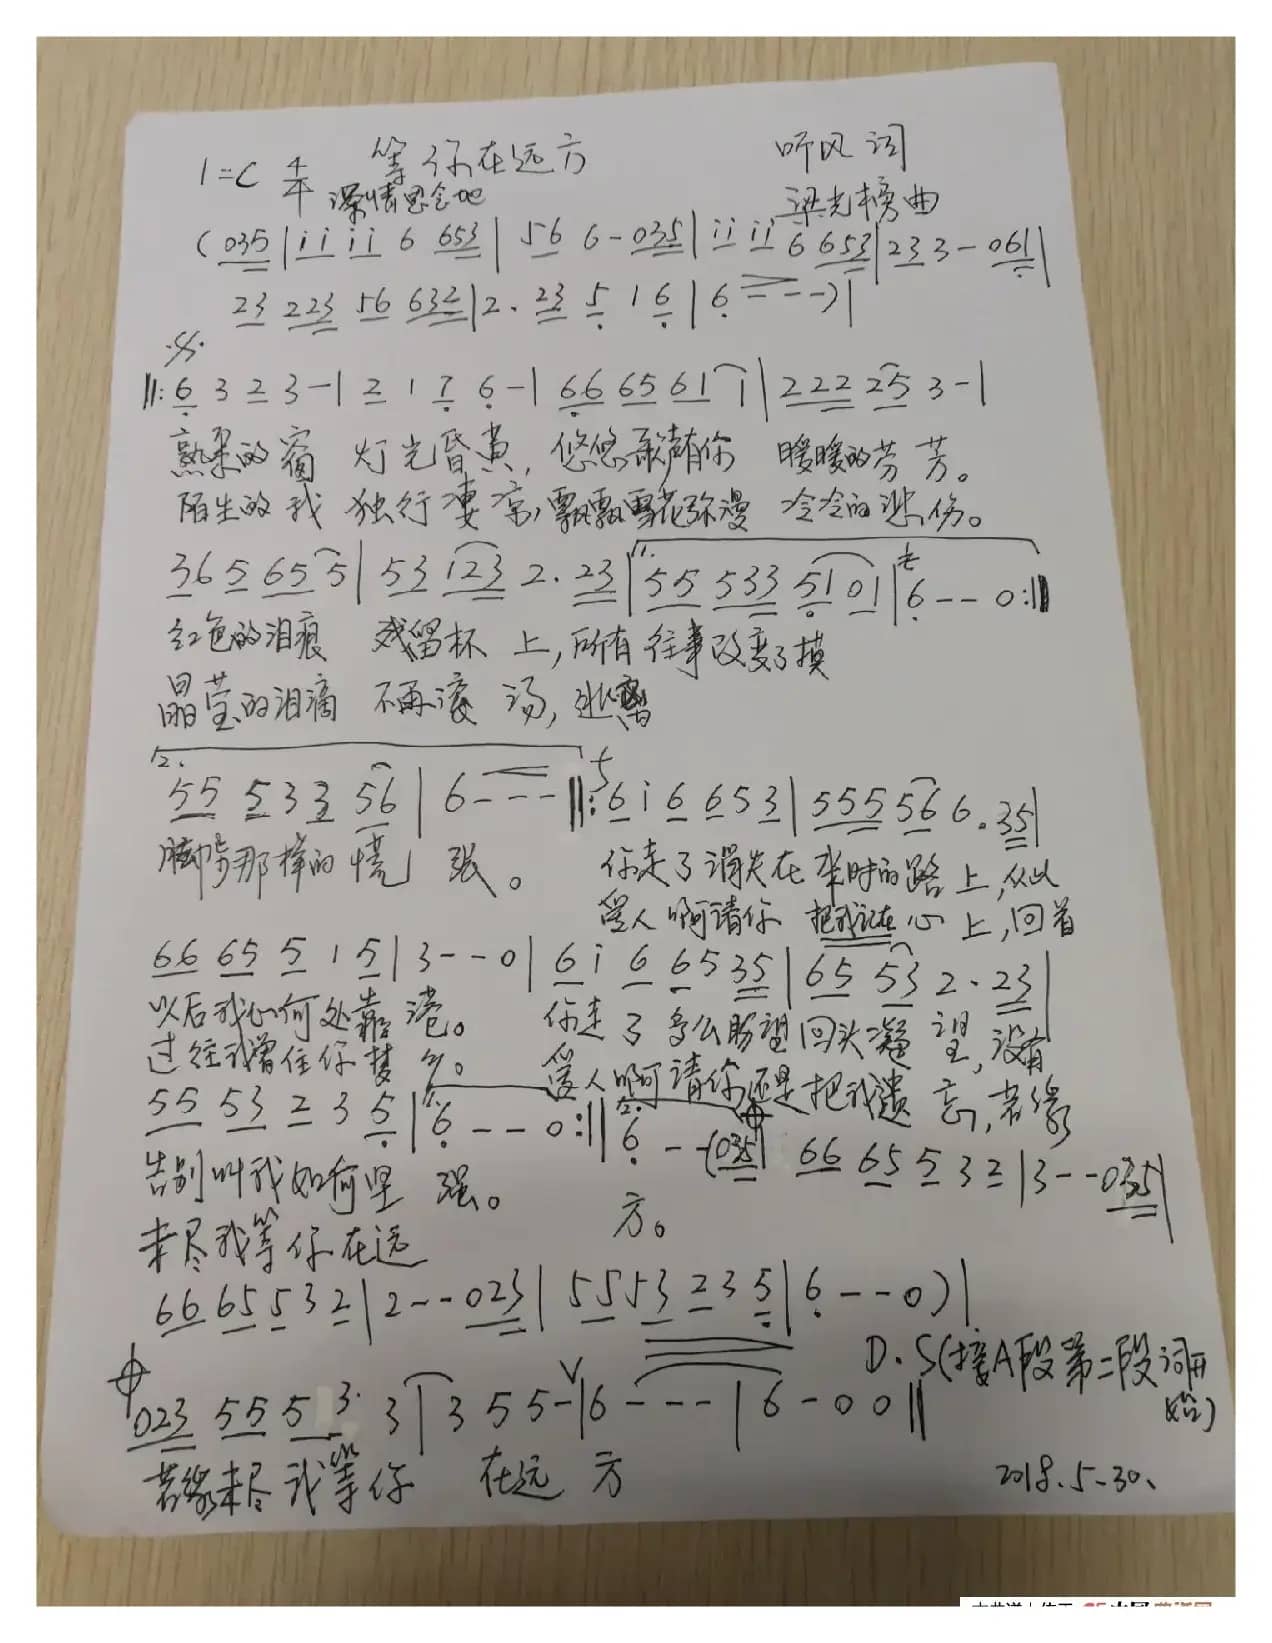 1=C 4/4 等你在远方 听风词
深情思念地 梁光榜曲
(035|ii ii 6 653|56 6-035|ii ii 6 653|23 3-061|
23 223 56 632|2. 23 5 1 6|6---)|
||:6 3 2 3-|2 1 7 6-|66 65 61 1|222 25 3-|
熟柔的窗 灯光昏黄,悠悠歌声有你 暖暖的芬芳。
陌生的我 独行凄凉,飘飘雪花弥漫 冷冷的悲伤。
36 5 65 5|53 123 2. 23|1.55 533 51 01|6--0:||
红色的泪痕 残留杯上,所有往事改变了模
晶莹的泪滴 不再滚汤,
2.
55 5 3 3 56|6---||:6 i 6 6 5 3|555 56 6.35|
脚步那样的慌张。 你走了消失在来时的路上,从此
爱人啊请你 把我记在心上,回首
66 65 5 1 5|3--0|6 i 6 6 5 35|65 53 2. 23|
以后我心何处靠港。 你走了多么盼望回头凝望,没有
过往我曾住你梦乡。 爱人啊请你还是把我遗忘,若缘
55 53 2 3 5|1.6--0:||2.6--(035| 66 65 5 3 2|3--035|
告别叫我如何坚强。 方。
未尽我等你在远
66 65 5 3 2|2--023|55 53 2 3 5|6--0)|
D.S(接A段第二段词开始)
023 55 5 3. 3|3 5 5-V|6---|6-00||
若缘未尽我等你 在远方
2018.5.30.